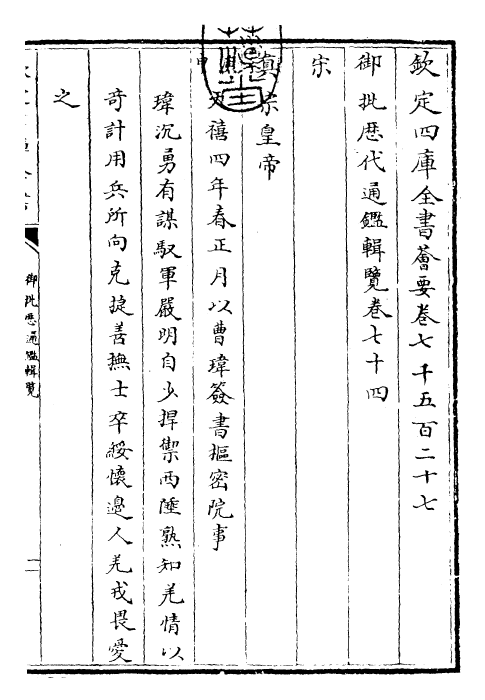 欽定四庫全書薈要卷七千五百二十七
御批歴代通鑑輯覽卷七十四
宋
真宗皇帝
天禧四年春正月以曹瑋簽書樞密院事
瑋沉勇有謀馭軍嚴明自少捍禦西陲熟知羌情以
奇計用兵所向克捷善撫士卒綏懷邊人羌戎畏愛
之
御批歴代通鑑輯覽